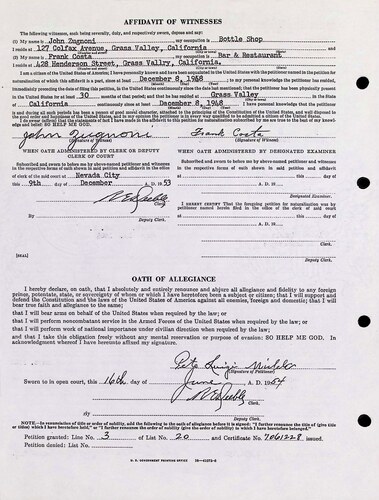 AFFIDAVIT OF WITNESSES
The following witness, each being severally, duly, and respectively sworn, depose and say:
My name is John Zugnoni my occupation is Bottle Shop
I reside at 127 Colfax Avenue, Grass Valley, California
My name is Frank Costa my occupation is Bar & Restaurant
I reside at 428 Henderson Street, Grass Vallry, California.
I am a citizen of the United States of America; I have personally known and have been acquainted in the United States with the petitioner named in the petition for
naturalization of which this affidavit is a part, since at least December 8, 1948 to my personal knowledge the petitioner has resided,
immediately preceding the date of filing this petition, in the United States continuously since the date last mentioned; that the petitioner has been physically present
in the United States for at least 30 months of that period; and that he has resided at Grass Valley
in the State of California continuously since at least December 8, 1948
and during all such periods has been a person of good moral character, attached to the principles of the Constitution of the United States, and well disposed to
the good order and happiness of the United States, and in my opinion the petitioner is in every way qualified to be admitted a citizen of the United States.
I do swear (affirm) that the statements of fact I have made in the affidavit to this petition for naturalization subscribed by me are true to the best of my knowledge
and belief SO HELP ME GOD.
John Zugnoni Frank Costa
(Signature of Witness) (Signature of Witness)
WHEN OATH ADMINISTERED BY CLERK OR DEPUTY CLERK OF COURT
WHEN OATH ADMINISTERED BY DESIGNATED EXAMINER
Subscribed and sworn to before me by above-named petitioner and witnesses
in the respective forms of oath shown in said petition and affidavit in the office
of clerk of the said court at Nevada City
this 9th day of December A. D. 1953
Clerk.
By
Deputy Clerk.
[SEAL]
Subscribed and sworn to before me by above-named petitioner and witnesses
in the respective forms of oath shown in said petition and affidavit
at
this day of A. D. 19
Designated Examiner.
I HEREBY CERTIFY That the foregoing petition for naturalization was by
petitioner named herein filed in the office of the clerk of said court
Clerk.
By
Deputy Clerk.
OATH OF ALLEGIANCE
I hereby declare, on oath, that I absolutely and entirely renounce and abjure all allegiance and fidelity to any foreign
prince, potentate, state, or sovereignty of whom or which I have heretofore been a subject or citizen; that I will support and
defend the Constitution and the laws of the United States of America against all enemies, foreign and domestic; that I will
bear true faith and allegiance to the same;
that I will bear arms on behalf of the United States when required by the law; or
that I will perform noncombatant service in the Armed Forces of the United States when required by the law; or
that I will perform work of national importance under civilian direction when required by the law;
and that I take this obligation freely without any mental reservation or purpose of evasion: SO HELP ME GOD. In
acknowledgment whereof I have hereunto affixed my signature.
(Signature of Petitioner)
Sworn to in open court, this 16th day of June, A. D. 1954
Clerk.
By
Deputy Clerk.
NOTE.—In renunciation of title or order of nobility, add the following to the oath of allegiance before it is signed: "I further renounce the title of (give title
or titles) which I have heretofore held," or "I further renounce the order of nobility (give the order of nobility) to which I have heretofore belonged."
Petition granted: Line No. 3 of List No. 20 and Certificate No. 7061228 issued.
Petition denied: List No.
U. S. GOVERNMENT PRINTING OFFICE